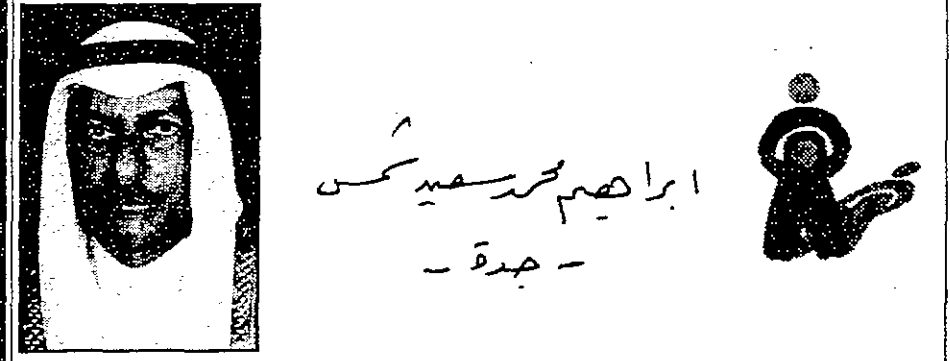 ابراهيم محمد سعيد شمس
- جدة -